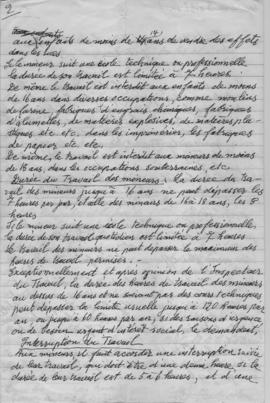 2
aux enfants de moins de 14 ans de vendre des effets
dans les rues
Si le mineur suit une école technique ou professionnelle
la durée de son travail est limitée à 7 heures.
De même le travail est interdit aux enfants de moins
de 16 ans dans diverses occupations, comme moulins
de farine, fabriques d'engrais chimiques, fabriques
d'allumettes, de matières explosives, de matières
etc. etc. dans les imprimeries, les fabriques
de papier etc. etc.
De même, le travail est interdit aux mineurs de moins
de 18 ans, dans les occupations souterraines, etc.
Durée du travail des mineurs: La durée du tra-
vail des mineurs jusqu'à 16 ans ne peut dépasser les
7 heures par jour, et celle des mineurs de 16 à 18 ans, les 8
heures
Si le mineur suit une école technique ou professionnelle,
la durée de son travail est limitée à 7 heures.
Le travail des mineurs ne peut dépasser le maximum des
heures de travail permises.
Exceptionnellement et après opinion de l'Inspecteur
du Travail, la durée des heures de travail des mineurs
au dessus de 16 ans et ne suivant pas des cours techniques
peut dépasser la limite usuelle jusqu'à 120 heures par
an, ou jusqu'à 60 heures par an, si des raisons d'urgence
ou de besoin urgent d'intérêt social, le demandent.
Interruption du Travail
Aux mineurs il faut accorder une interruption
de leur travail, qui doit être d'une demi heure, si la
durée de leur travail est de 5 à 6 heures, et d'une